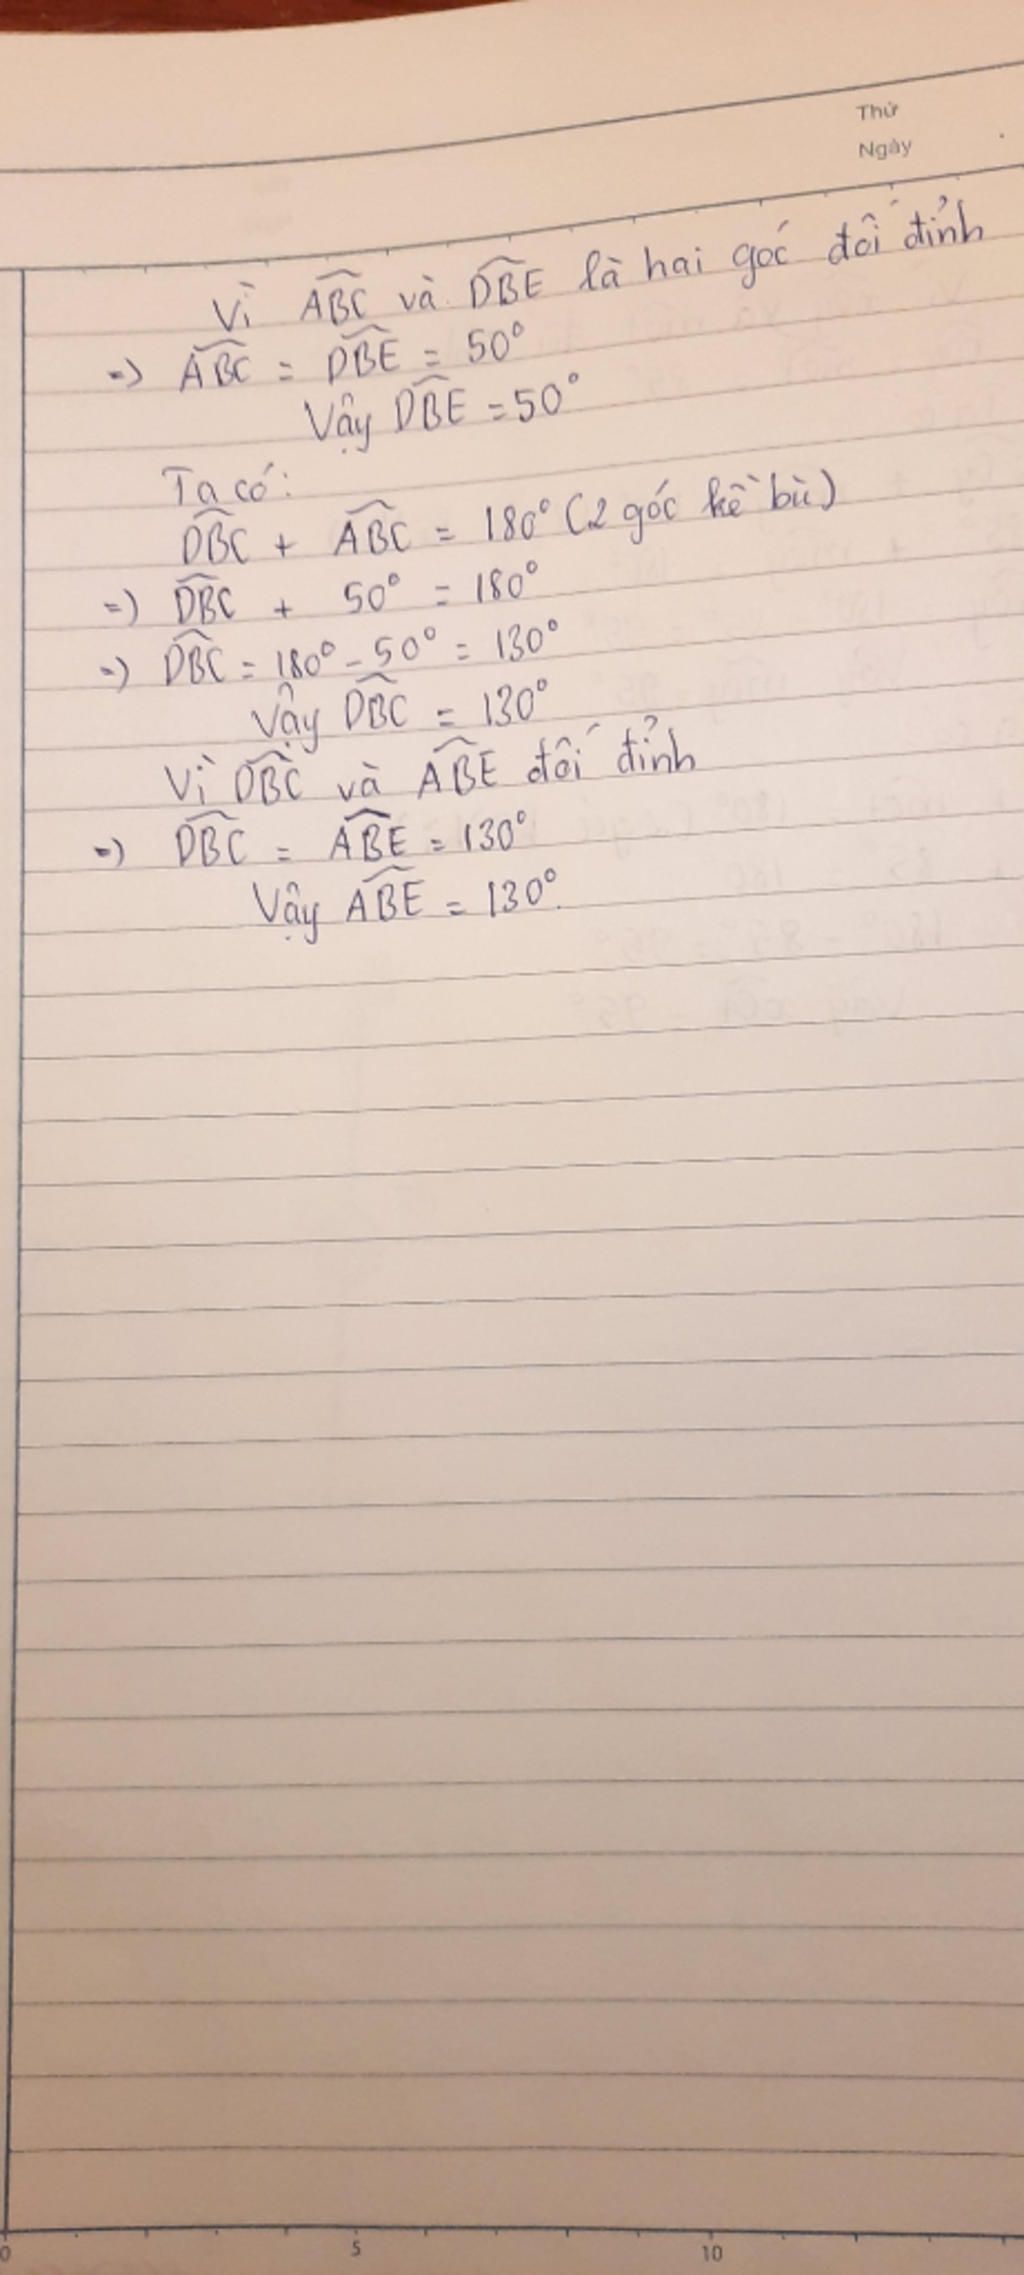 Thứ
Ngày
Vì ABC và DBE là hai góc đối đỉnh
=> ABC = DBE = 50°
Vậy DBE = 50°
Ta có:
DBC + ABC = 180° (2 góc kề bù)
=> DBC + 50° = 180°
=> DBC = 180° - 50° = 130°
Vậy DBC = 130°
Vì DBC và ABE đối đỉnh
=> DBC = ABE = 130°
Vậy ABE = 130°.
0 5 10